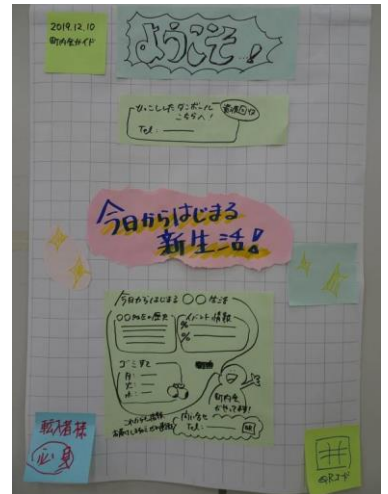 2019.12.10
町内会ガイド
ようこそ!
ひっこししたダンボールは
こちらへ!
資源回収
Tel:
今日からはじまる
新生活!
今日からはじまる〇〇生活
〇〇地区の歴史
イベント情報
%
%
ゴミすて
月:
火:
水:
町内会
がやってます!
これからも定期
問い合せ
Tel:
転入者様
必見
QRコード